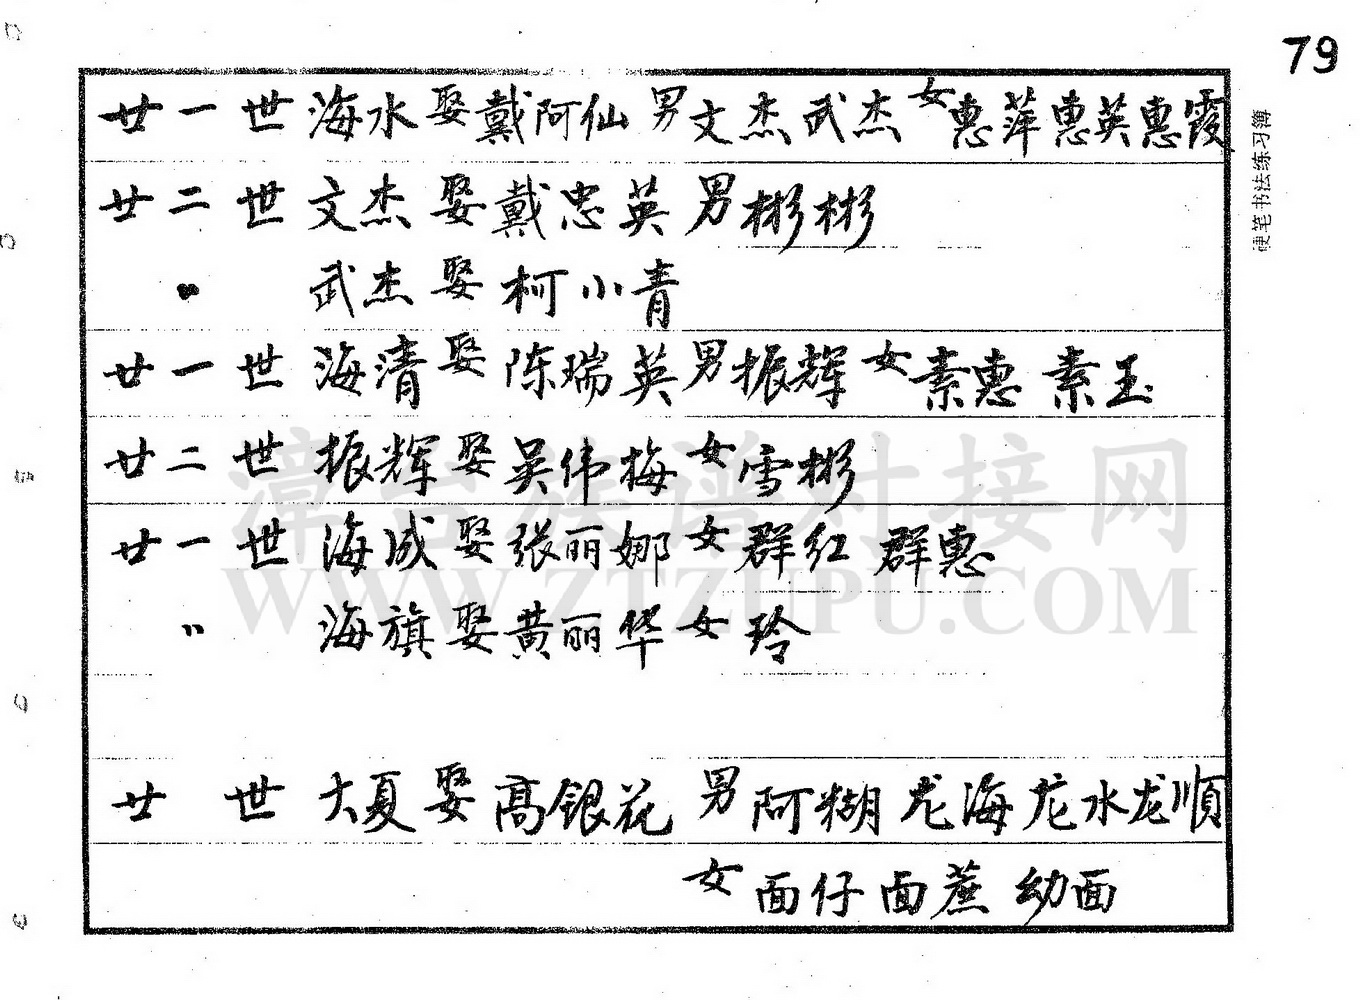 79
廿一世 海水 娶 戴阿仙 男 文杰 武杰 女 惠萍 惠英 惠霞
廿二世 文杰 娶 戴忠英 男 彬彬
〃 武杰 娶 柯小青
廿一世 海清 娶 陈瑞英 男 振辉 女 素惠 素玉
廿二世 振辉 娶 吴伟梅 女 雪彬
廿一世 海成 娶 张丽娜 女 群红 群惠
〃 海旗 娶 黄丽华 女 玲
廿世 大夏 娶 高银花 男 阿糊 龙海 龙水 龙顺
女 面仔 面蔗 幼面
硬笔书法练习簿
漳台族谱对接网
WWW.ZTZUPU.COM